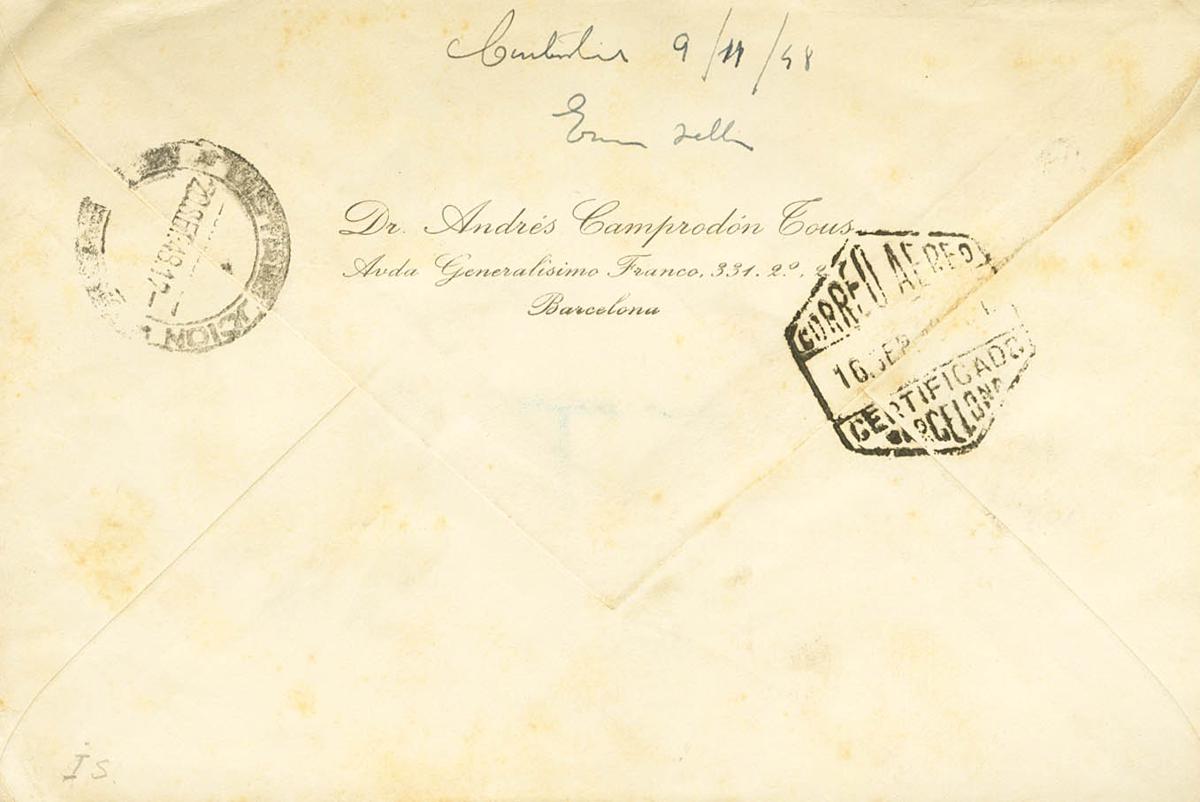 9/11/48
Dr. Andrés Camprodón Tous
Avda Generalísimo Franco, 331. 2.º, 2
Barcelona
20.SEP.48.17-
CION
CORREO AEREO
16.SEP
CERTIFICADO
BARCELONA
I S.